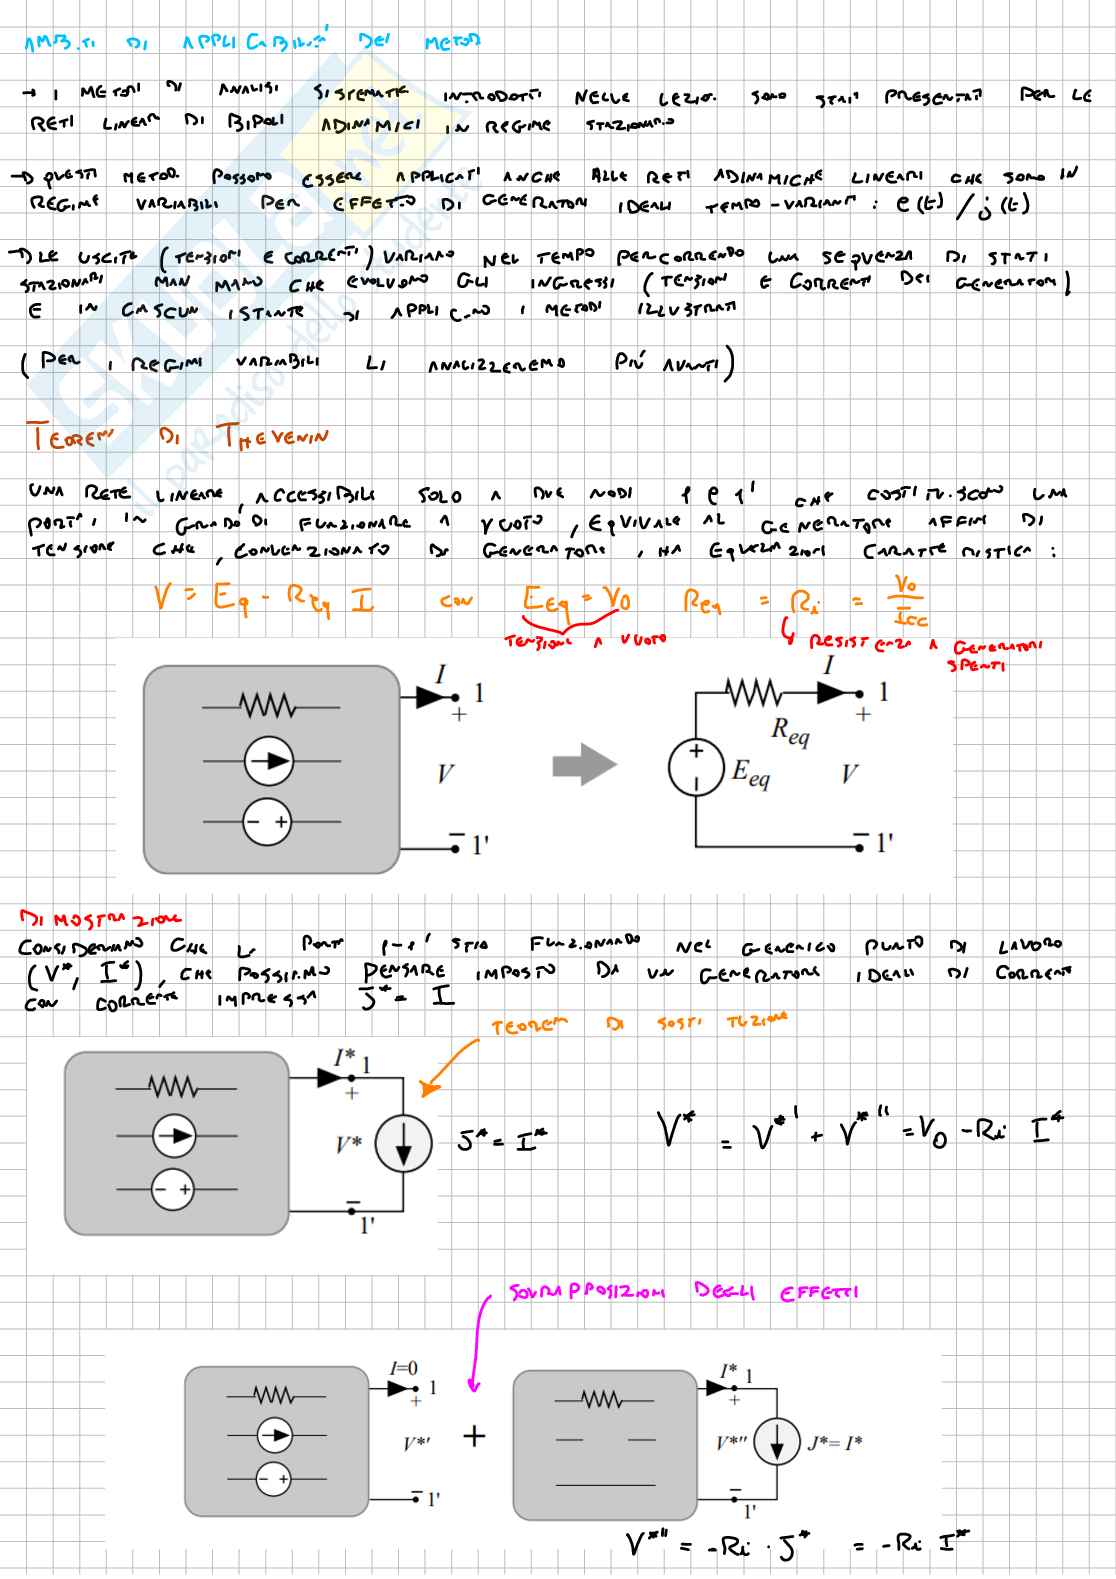 AMBITI DI APPLICABILITÀ DEI METODI
→ I METODI DI ANALISI SISTEMATICI INTRODOTTI NELLE LEZIONI SONO STATI PRESENTATI PER LE
RETI LINEARI DI BIPOLI ADINAMICI IN REGIME STAZIONARIO
→ QUESTI METODI POSSONO ESSERE APPLICATI ANCHE ALLE RETI ADINAMICHE LINEARI CHE SONO IN
REGIME VARIABILI PER EFFETTO DI GENERATORI IDEALI TEMPO-VARIANTI : e(t) / j(t)
→ LE USCITE (TENSIONI E CORRENTI) VARIANO NEL TEMPO PERCORRENDO UNA SEQUENZA DI STATI
STAZIONARI MAN MANO CHE EVOLVONO GLI INGRESSI (TENSIONI E CORRENTI DEI GENERATORI)
E IN CIASCUN ISTANTE SI APPLICANO I METODI ILLUSTRATI
(PER I REGIMI VARIABILI LI ANALIZZEREMO PIÙ AVANTI)
TEOREMA DI THEVENIN
UNA RETE LINEARE, ACCESSIBILE SOLO A DUE NODI 1 e 1' CHE COSTITUISCONO UNA
PORTA, IN GRADO DI FUNZIONARE A VUOTO, EQUIVALE AL GENERATORE AFFINE DI
TENSIONE CHE, CONVENZIONATO DA GENERATORE, HA EQUAZIONI CARATTERISTICA :
V = Eq - Req I CON Eeq = V0 Req = Ri = V0/Icc
TENSIONE A VUOTO RESISTENZA A GENERATORI
SPENTI
I 1 + V - 1'
I 1 + Req Eeq V - 1'
DIMOSTRAZIONE
CONSIDERIAMO CHE LA PORTA 1-1' STIA FUNZIONANDO NEL GENERICO PUNTO DI LAVORO
(V*, I*), CHE POSSIAMO PENSARE IMPOSTO DA UN GENERATORE IDEALE DI CORRENTE
CON CORRENTE IMPRESSA J* = I
TEOREMA DI SOSTITUZIONE
I* 1 + V* - 1'
J* = I*
V* = V*' + V*'' = V0 - Ri I*
SOVRAPPOSIZIONI DEGLI EFFETTI
I=0 1 + V*' - 1'
+
I* 1 + V*'' J*= I* - 1'
V*'' = -Ri · J* = -Ri I*